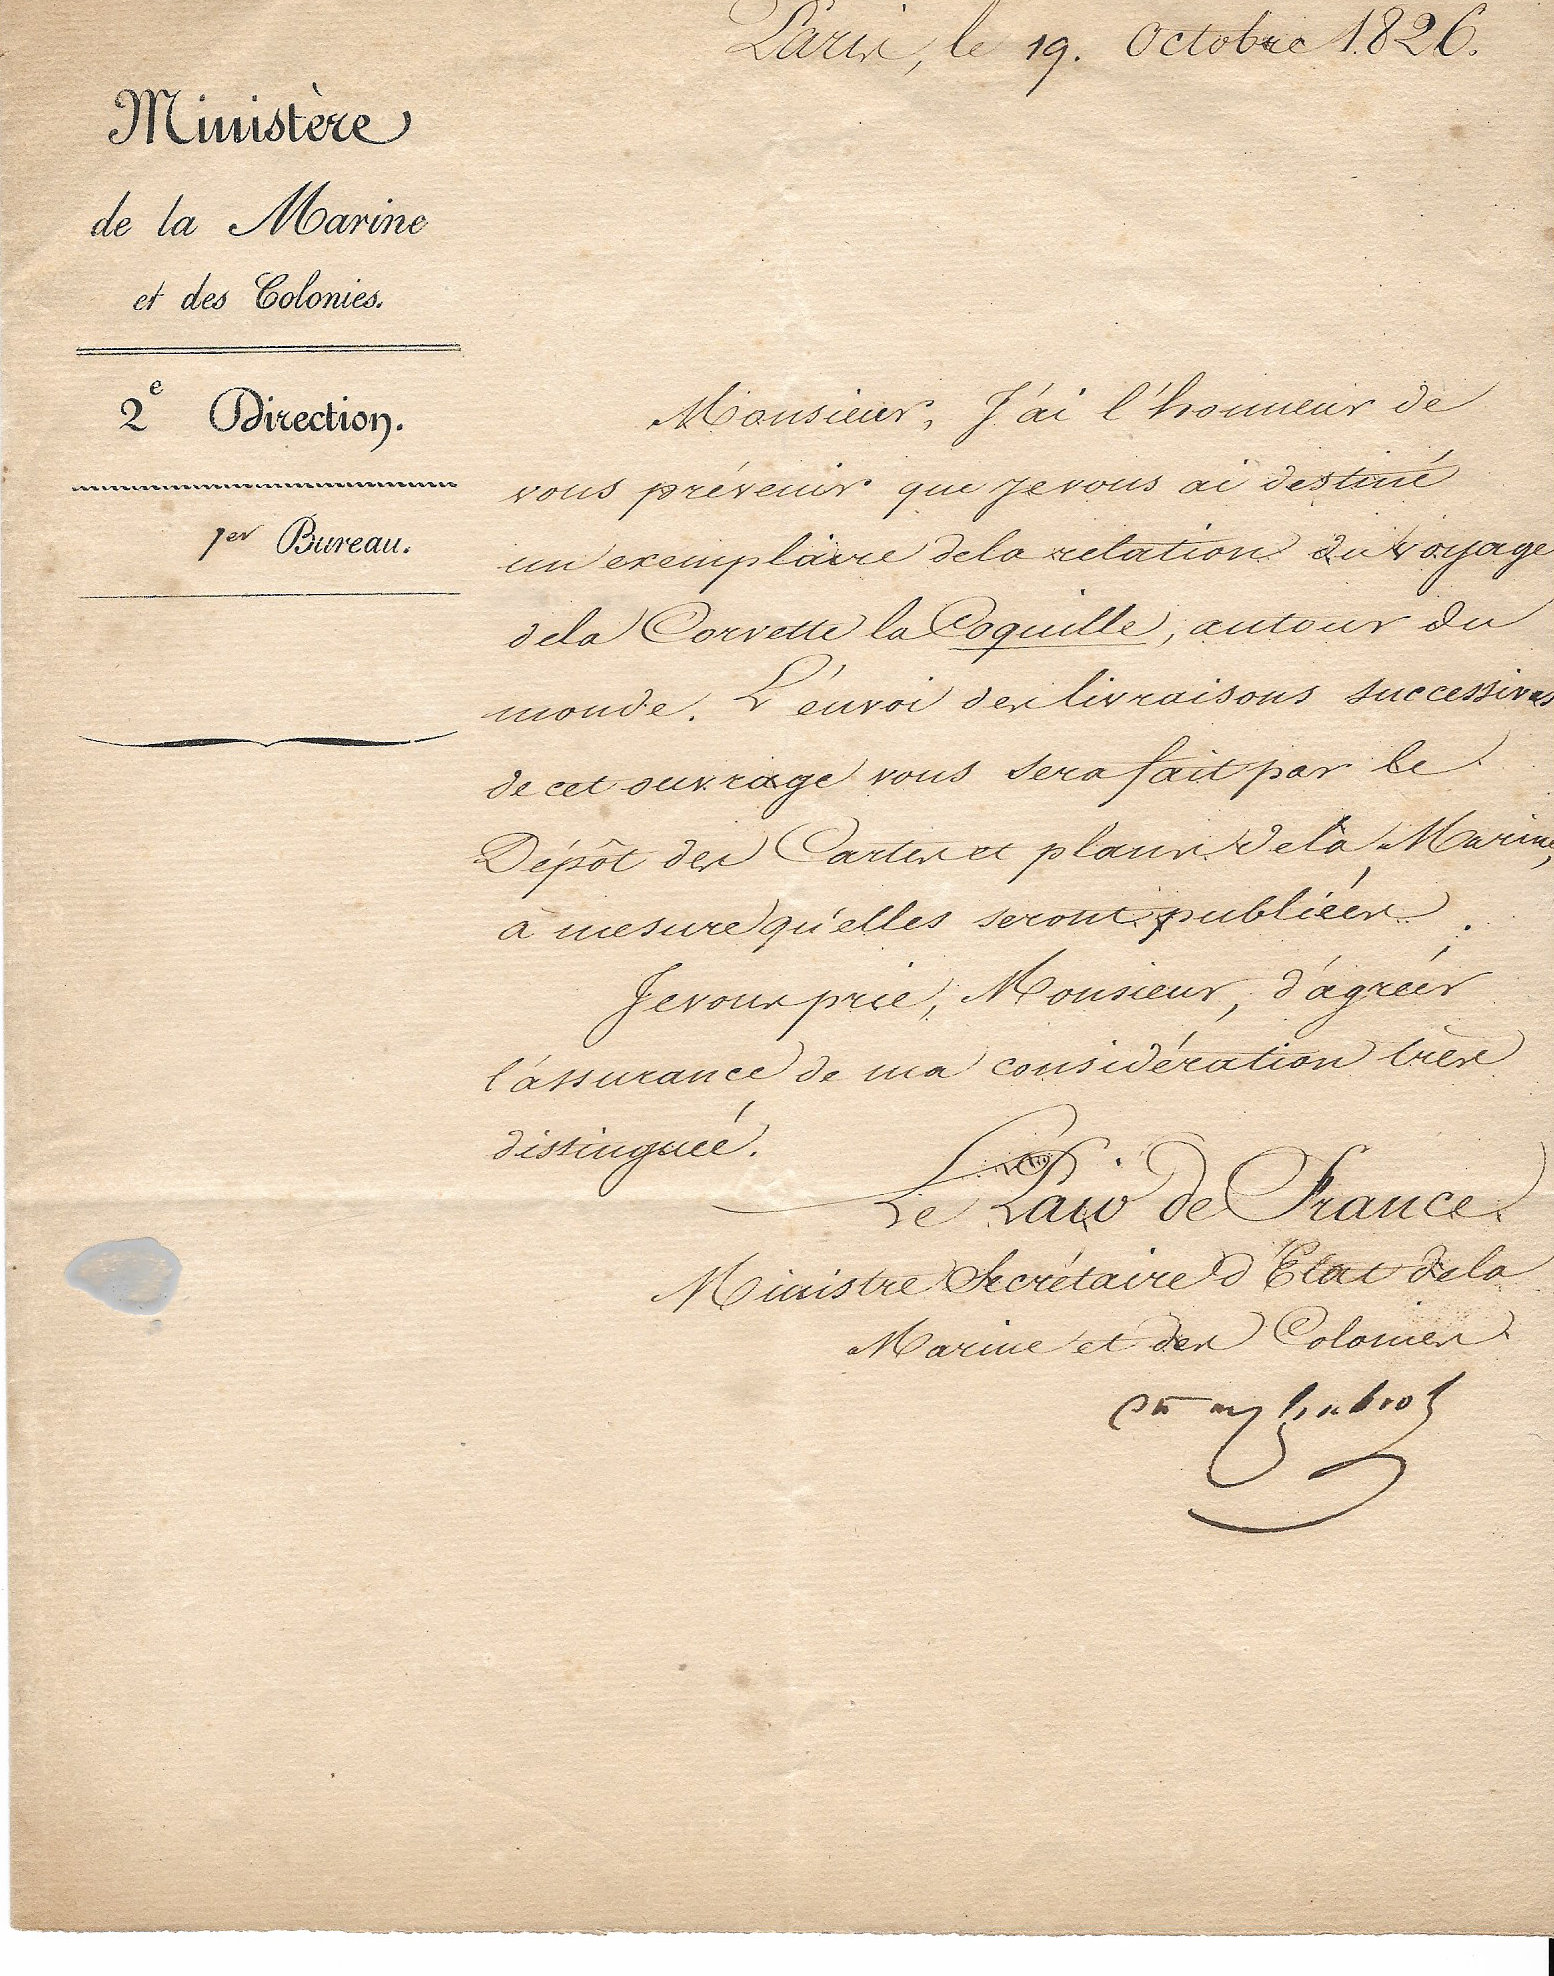 Paris, le 19. Octobre 1826.
Ministère
de la Marine
et des Colonies.
2e Direction.
1er Bureau.
Monsieur, J'ai l'honneur de
vous prévenir que je vous ai destiné
un exemplaire de la relation du voyage
de la Corvette la Coquille, autour du
monde. L'envoi des livraisons successives
de cet ouvrage vous sera fait par le
Dépôt des Cartes et plans de la Marine,
à mesure qu'elles seront publiées.
Je vous prie, Monsieur, d'agréer
l'assurance de ma considération très
distinguée.
Le Pair de France
Ministre Secrétaire d'Etat de la
Marine et des Colonies